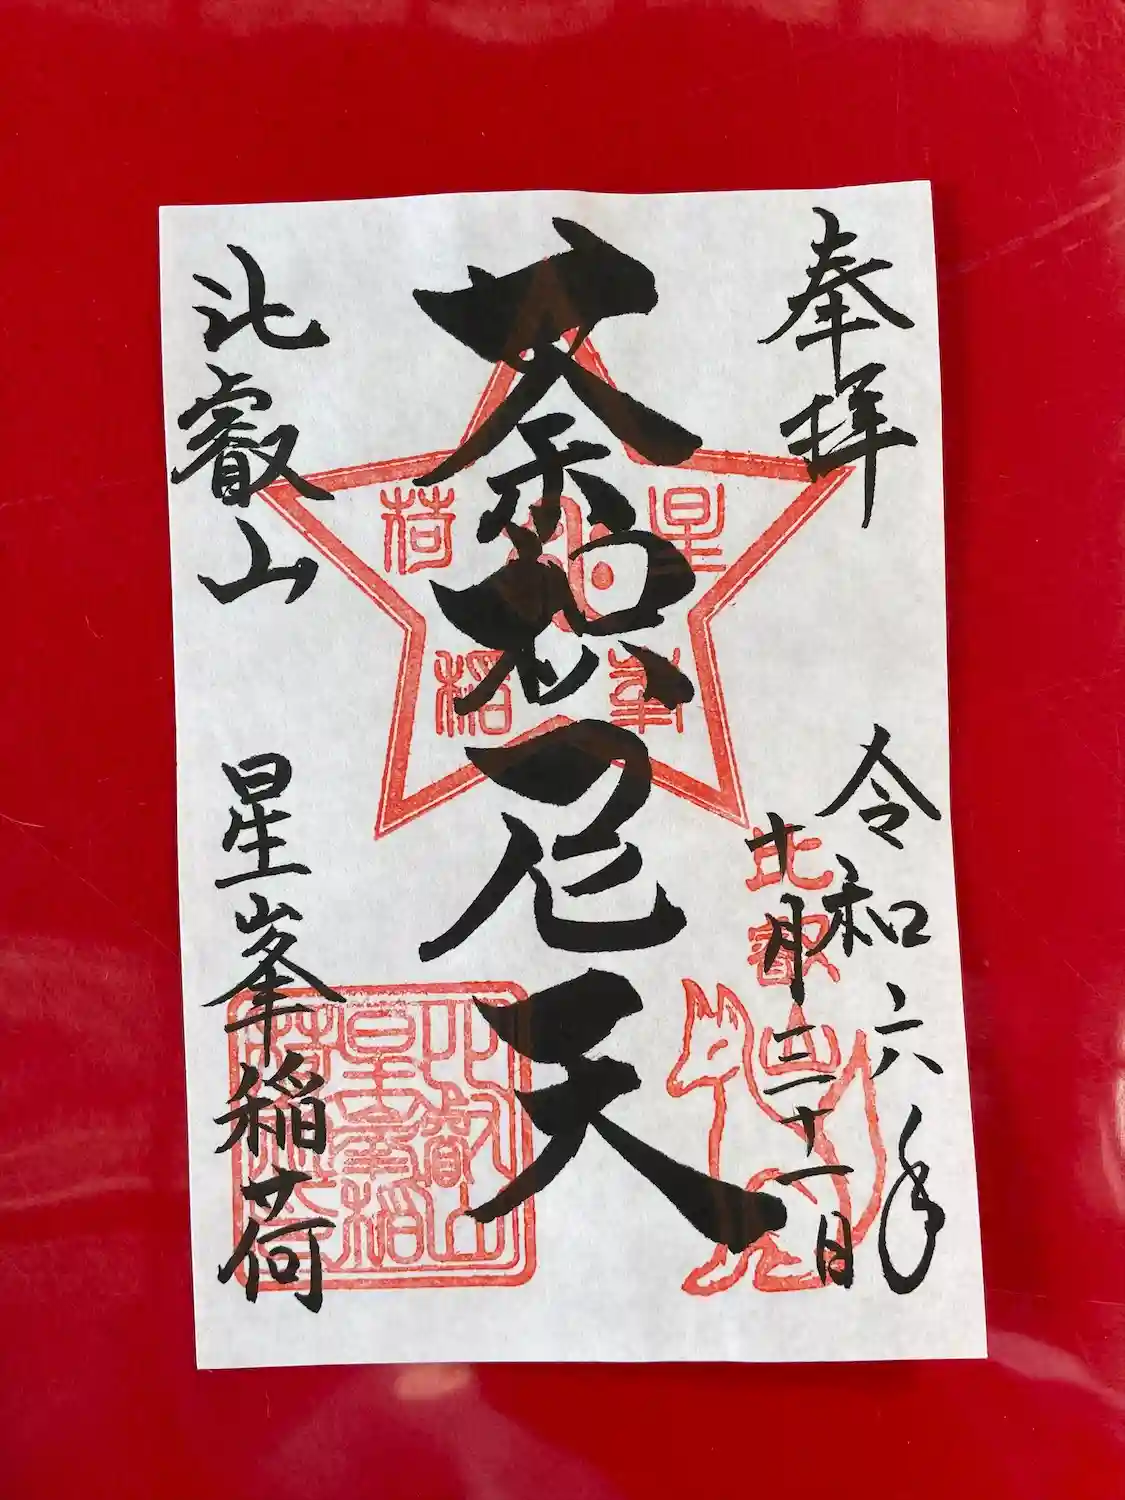 奉拝
令和六年
十月三十一日
荼枳尼天
比叡山
星峯稲荷
星峯稲荷
比叡山
比叡山
星峯稲
荷